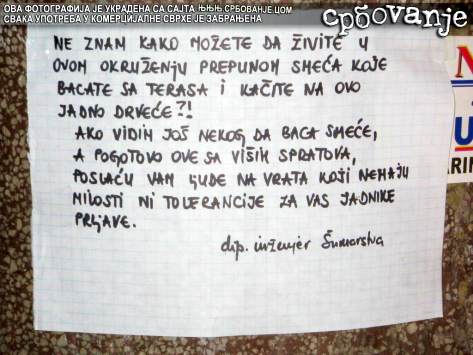 ОВА ФОТОГРАФИЈА ЈЕ УКРАДЕНА СА САЈТА ЊЊЊ СРБОВАЊЕ ЦОМ
СВАКА УПОТРЕБА У КОМЕРЦИЈАЛНЕ СВРХЕ ЈЕ ЗАБРАЊЕНА
србовanje
NE ZNAM KAKO MOŽETE DA ŽIVITE U
OVOM OKRUŽENJU PREPUNOM SMEĆA KOJE
BACATE SA TERASA I KAČITE NA OVO
JADNO DRVEĆE?!
AKO VIDIM JOŠ NEKOG DA BACA SMEĆE,
A POGOTOVO OVE SA VIŠIH SPRATOVA,
POSLAĆU VAM LJUDE NA VRATA KOJI NEMAJU
MILOSTI NI TOLERANCIJE ZA VAS JADNIKE
PRLJAVE.
dip. inženjer Šumarstva
N
U
ARIN